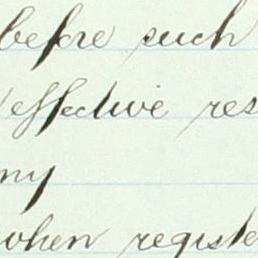 before such
effective res
ny
when registe